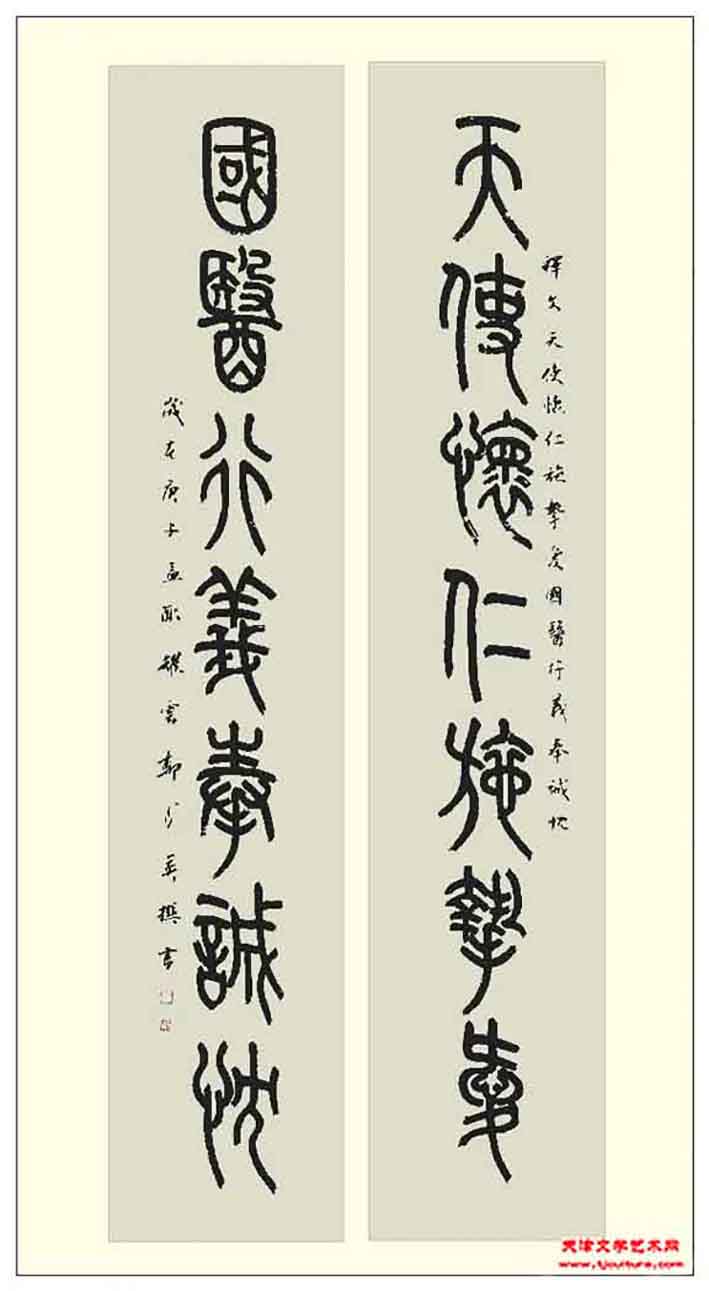 天使懷仁施摯愛
釋文天使懷仁施摯愛國醫行義奉誠忱
國醫行義奉誠忱
歲在庚子孟
雲郭
英撰書
天津文学艺术网
www.tjculture.com